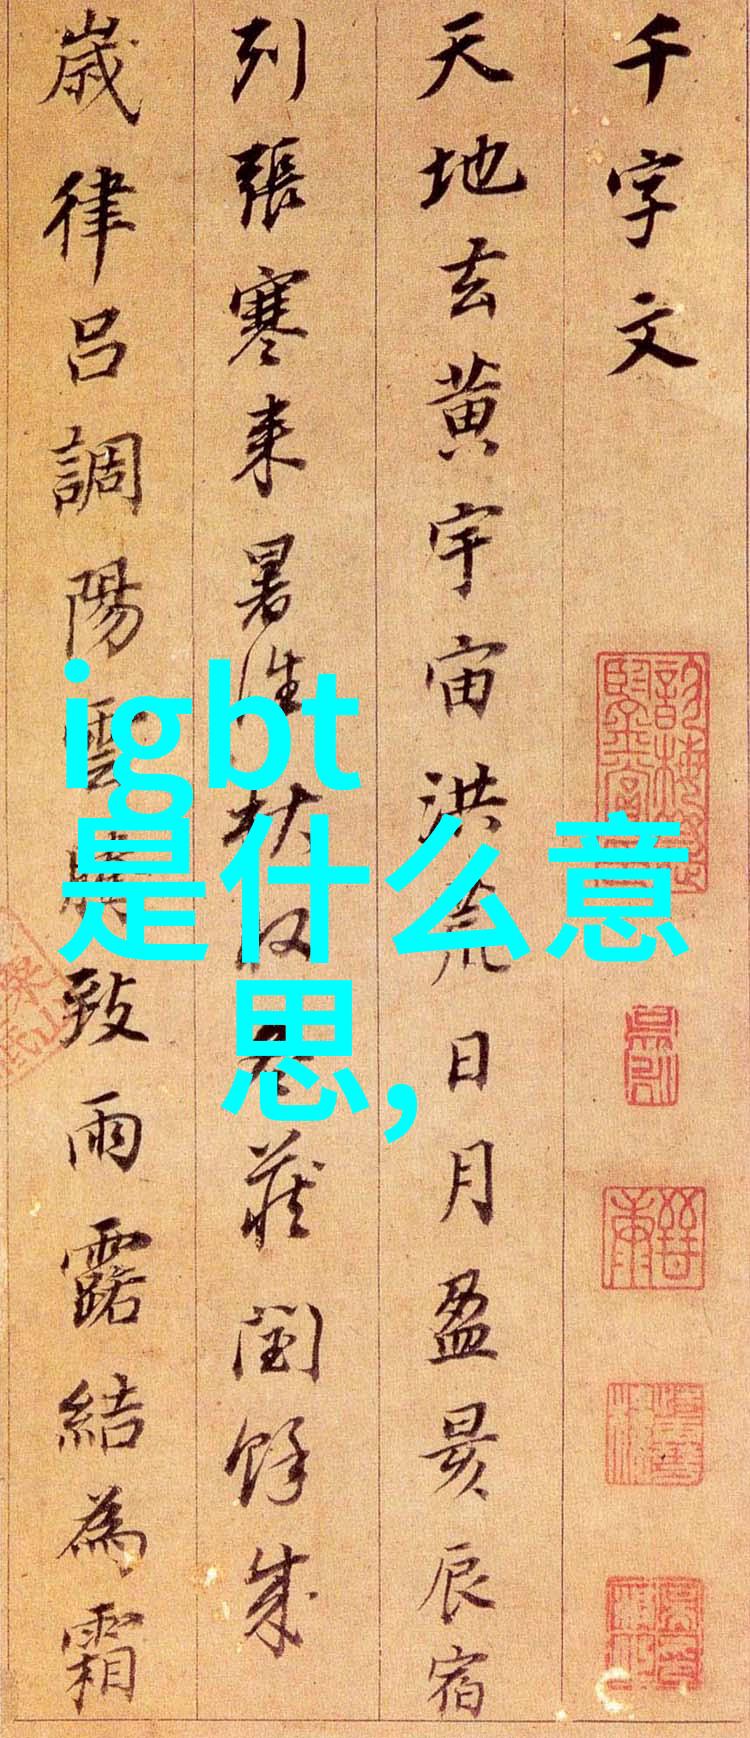 千字文
天地玄黄宇宙洪荒日月盈昃辰宿
列張寒来暑往秋收冬蔵閏餘成
歲律吕調陽雲騰致雨露結為霜
igbt
是什么意
思,